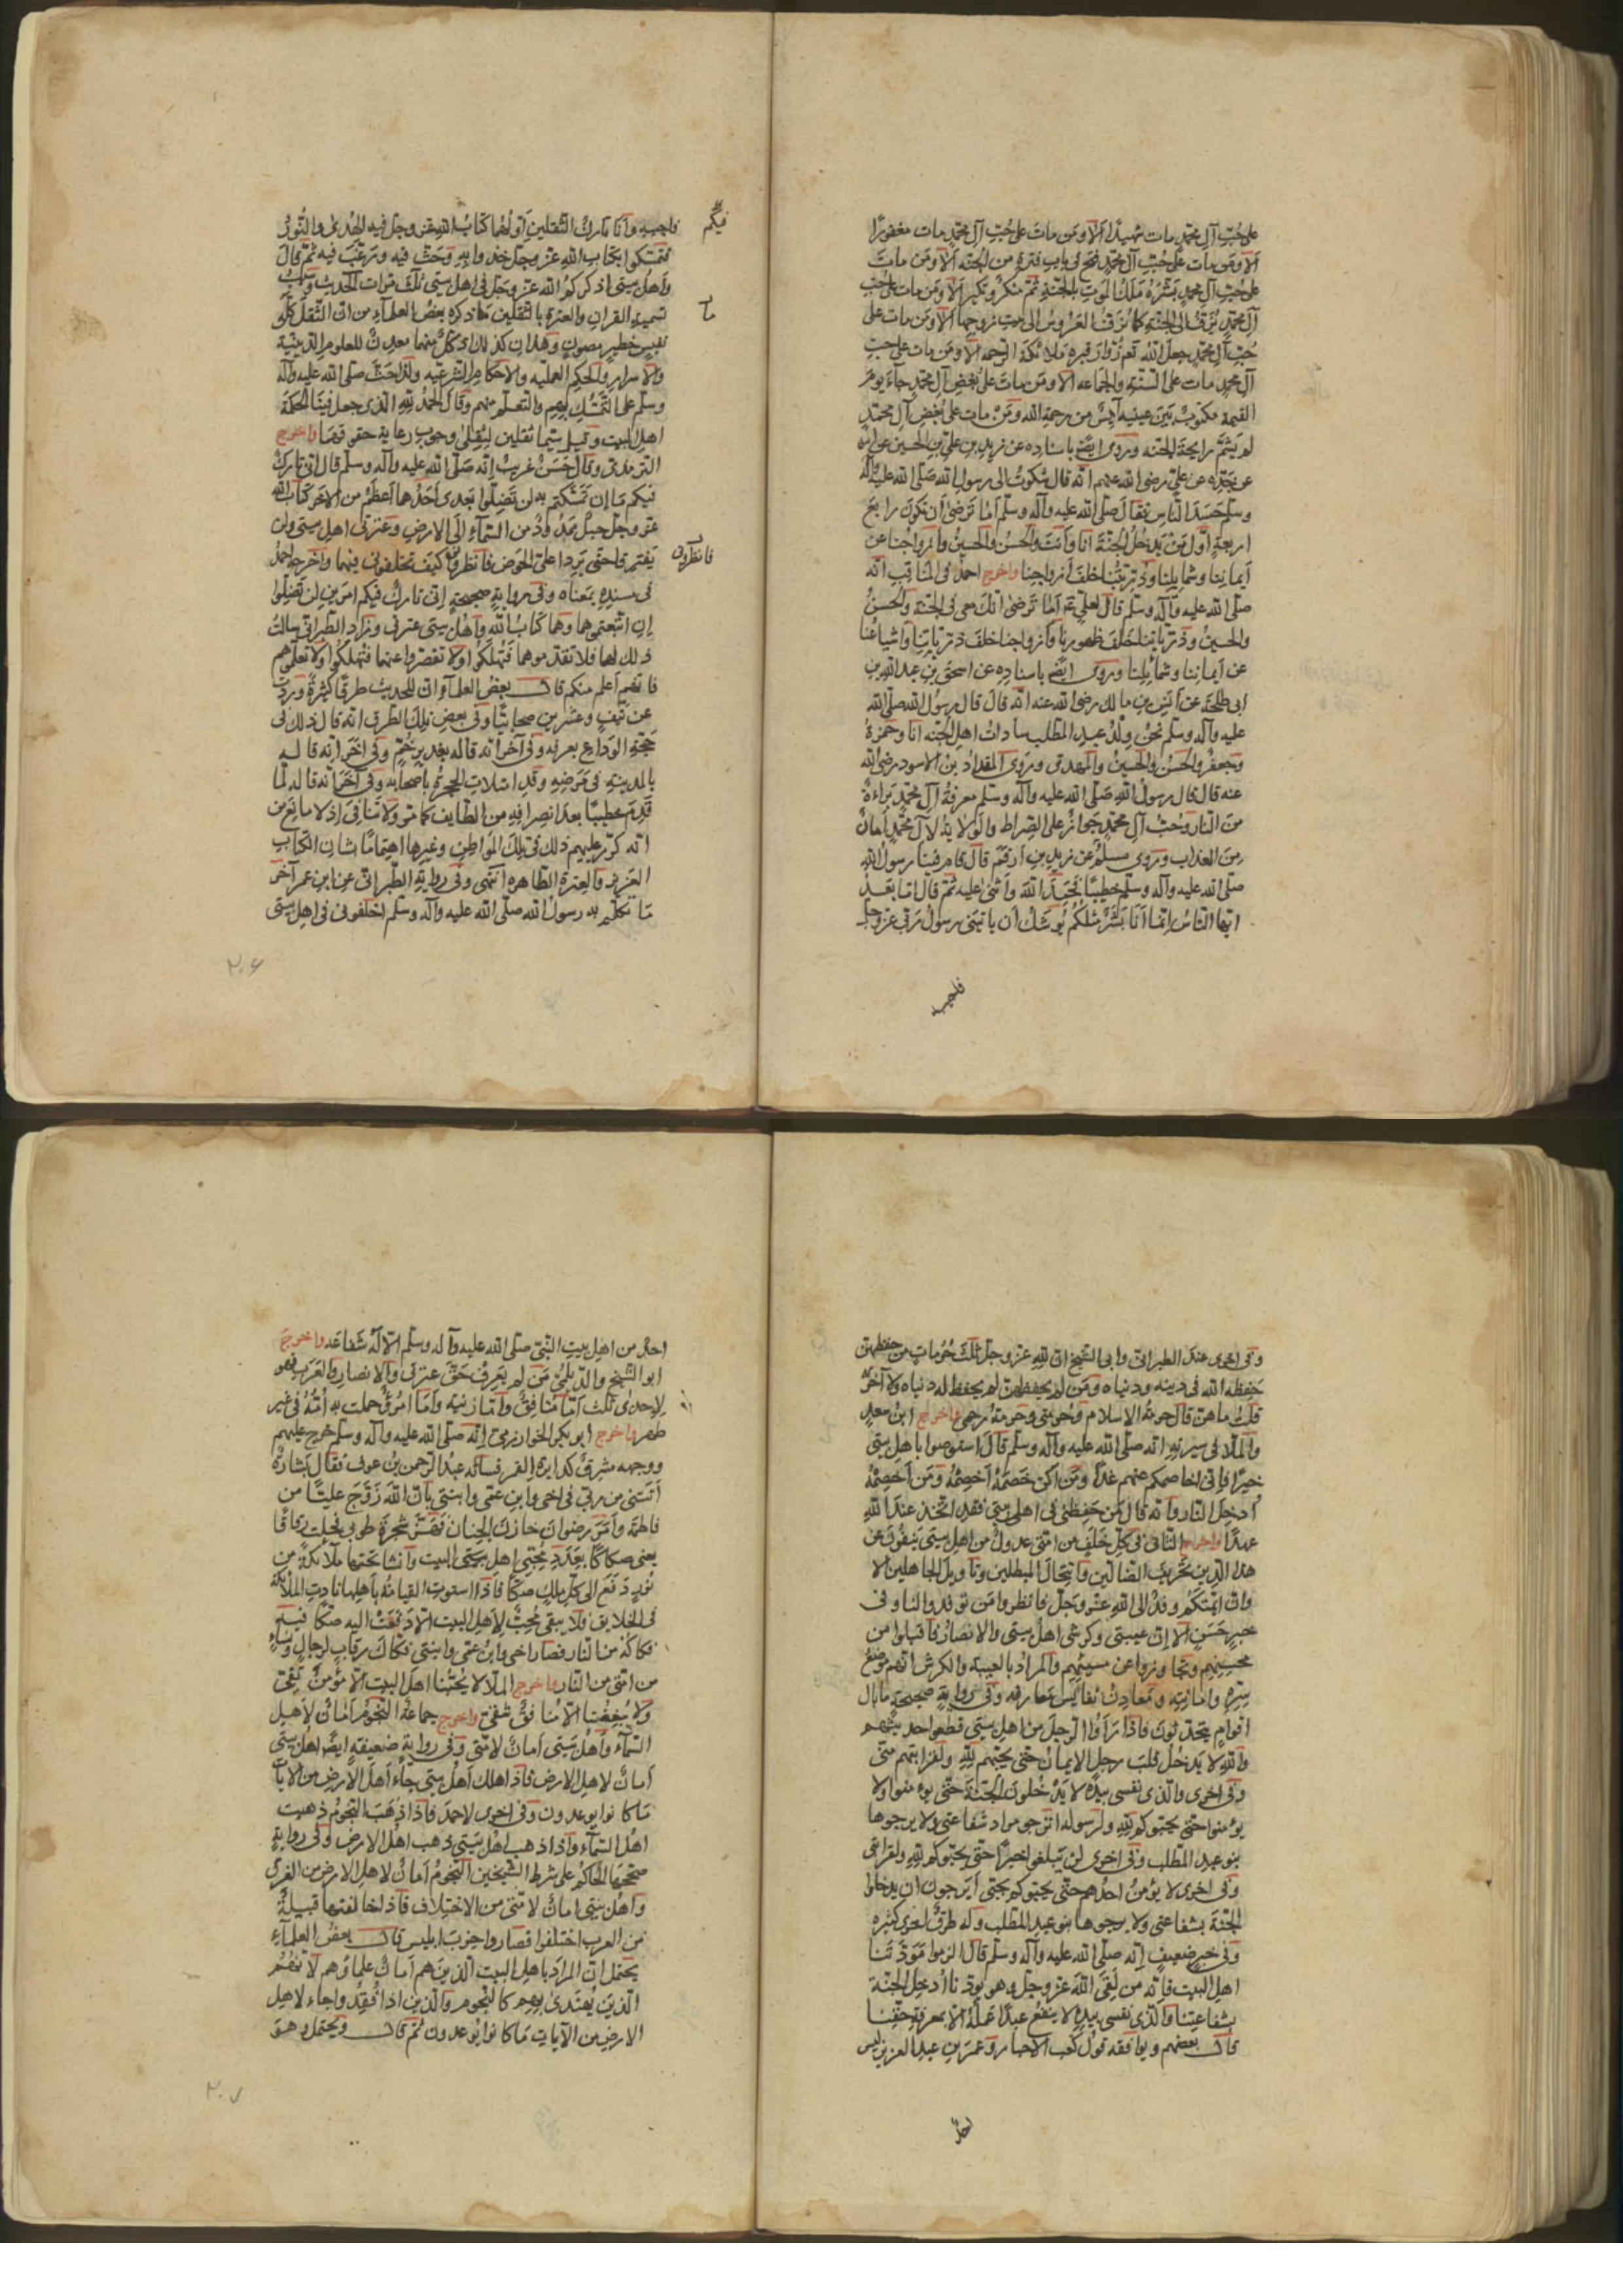 على حُبّ آل محمّد مات شهيدًا اَلا ومَن ماتَ على حُبّ آل محمّد مات مغفورًا
اَلا ومَن مات على حُبّ آل محمّد فتح فى باب قبره من الجنّه اَلا ومَن ماتَ
على حُبّ آل محمد بَشّرهُ مَلَكُ المَوتِ بالجنّةِ ثمّ منكرٌ ونكير اَلا ومَن مات على حُبّ
آل محمّد يُزفّ الى الجنّةِ كما تُزَفّ العَروسُ الى بيت زوجها اَلا ومَن مات على
حُبّ آل محمّد جعل اللهُ تعم زُوّارَ قبرِه مَلائكةَ الرّحمه اَلا ومَن مات على حبّ
آل محمّد مات على السُنّةِ والجَماعه اَلا ومَن ماتَ على بُغضِ آل محمّد جآءَ يومَ
القيمة مكتوبٌ بَينَ عينيه آيسٌ من رحمةِ الله ومَنْ مات على بُغضِ آل محمّدٍ
لم يَشُمّ رايحةَ الجنّه وروى ايضًا باسناده عن زيدِ بن علىّ بن الحسين عن ابيه
عن جَدّه عن علىّ رضى الله عنهم انّه قال شكوتُ الى رسول الله صَلّى الله عليه وآله
وسلّم حَسَدَ النّاس فقالَ صلّى الله عليه وآله وسلّم اَمَا تَرضىٰ اَن تكونَ رابعَ
اربعةٍ اوّلُ مَنْ يَدخُلُ الجنّةَ انَا وَاَنتَ والحَسَنُ والحسينُ وازواجُنا عن
اَيمانِنا وشمايِلِنا وذرّيّتُنا خلفَ اَزواجِنا واخرج احمدُ فى المناقبِ انّه
صلّى الله عليه وآله وسلّم قال لعلىّ عم اَمَا تَرضىٰ انّك معى فى الجنّة والحَسنُ
والحسينُ وذرّياتُنا خَلفَ ظهورِنا وَاَزواجُنا خلفَ ذرّياتِنا واشياعُنا
عن اَيمانِنا وشمائِلِنا وروى ايضًا باسنادِه عن اسحقَ بنِ عبدِ اللهِ بنِ
ابى طلحَة عن اَنَسِ بنِ مالك رضى الله عنه انّه قالَ قال رسُولُ الله صلّى الله
عليه وآله وسلّم نحنُ وِلْدُ عبدِ المطّلب ساداتُ اهلِ الجنّه انَا وحَمزةُ
وجَعفرٌ والحَسَنُ والحُسينُ والمهدىّ وروى المقدادُ بنُ الاسودِ رضى الله
عنه قال قال رسولُ الله صَلّى الله عليه وآله وسلّم معرفةُ آلِ محمّدٍ براءةٌ
منَ النّار وحُبّ آلِ محمّدٍ جَوازٌ على الصّراط والوَلايةُ لآلِ محمّدٍ اَمانٌ
مِن العذابِ وروى مسلمٌ عن زيدِ بنِ اَرقَمَ قال قام فينا رسولُ الله
صلّى الله عليه وآله وسلّم خطيبًا فحَمِدَ اللهَ وَاَثنىٰ عليه ثمّ قال امّا بعدُ
ايّها النّاسُ اِنّما اَنَا بَشَرٌ مثلكُم يُوشَكُ اَن ياتينى رسولُ ربّى عزّ وجلّ
فاجيبه
فاجيبه وَاَنا تاركٌ فيكُم الثّقلينِ اَوّلُهما كتابُ اللهِ عزّ وجلّ فيه الهُدىٰ والنُّورُ
فتمسّكوا بكتابِ اللهِ عزّ وجلّ خذوا به وحَثّ فيه ورغّبَ فيه ثمّ قالَ
واَهلُ بيتى اذكركم الله عزّ وجَلّ فى اهل بيتى ثلثَ مرّات الحديث وسَبَبُ
تسميةِ القرانِ والعترةِ بالثّقلين ما ذكره بعضُ العلمآءِ من انّ الثّقلَ كلّ
ما
نفيسٍ خطيرٍ مصونٍ وهذان كذلك اذ كلٌّ منهما معدِنٌ للعلومِ الدّينيّة
والاسرارِ والحِكمِ العمليه والاحكامِ الشّرعيّه ولذا حَثّ صلّى الله عليه وآله
وسلّم على التّمسُّكِ بهم والتعلّم منهم وقال الحمدُ لله الذى جعل فينَا الحكمَةَ
اهل البيت وقيل سمّيا ثقلين لثِقلِ وجوبِ رعايةِ حقوقهما واخرج
الترمذىّ وقال حَسَنٌ غريبٌ انّه صَلّى الله عليه وآله وسلّم قال انّى تاركٌ
فيكم ما اِن تَمسّكتم به لن تَضِلّوا بَعدى اَحَدُهما اَعظَمُ من الآخَر كتابُ الله
عزّ وجلّ حبلٌ ممدُودٌ من السّمآء الى الارضِ وعترتى اهل بيتى ولن
يَفترقا حتّى يَرِدا علىّ الحَوضَ فانظروا كيفَ تخلفونى فيهما واخرجه احمدُ
فانظرونى
فى مسندِه بمَعناه وفى روايةٍ صحيحةٍ اِنّى تاركٌ فيكم امرَينِ لن تَضِلّوا
اِن اتّبعتموهما وهما كتابُ اللهِ وَاَهلُ بيتى عترتى وزاد الطبرانىّ سالتُ
ذلك لهما فلا تقدّموهما فَتَهلَكُوا ولا تقصروا عنهما فتهلكُوا ولا تعلّموهم
فانّهم اَعلم منكم قال بعضُ العلمآء انّ للحديث طرقًا كثيرةً وردت
عن نَيّفٍ وعشرينَ صحابيًّا وفى بعضِ تلك الطّرقِ انّه قال ذلك فى
حَجّةِ الوَداعِ بعرفه وفى آخر انّه قاله بغديرِ خُمّ وفى آخَر انّه قاله
بالمدينةِ فى مَرَضِه وقد امتلات الحُجرةُ باصحابه وفى آخَر انّه قاله لمّا
قَدِمَ خطيبًا بعد انصرافِه من الطّايف كما مرّ ولا تنافى اذ لا مانعَ من
انّه كرّر عليهم ذلك فى تلك المَواطِنِ وغيرِها اهتمامًا بشانِ الكتابِ
العزيزِ والعترةِ الطّاهره انتهى وفى روايةِ الطّبرانى عن ابن عمر آخر
مَا تكلّم به رسولُ الله صلّى الله عليه وآله وسلّم اخلفونى فى اهلِ بيتى
٢٠٦
وفى اخرى عندَ الطبرانىّ وابى الشيخ انّ للهِ عزّ وجلّ ثلثَ حُرُماتٍ مَن حفظهنّ
حفظه الله فى دينه ودنياه ومَن لم يحفظهنّ لم يحفظ له دنياه ولا آخرته
قلتُ ما هنّ قال حرمةُ الاسلام وحُرمتى وحرمةُ رحمى واخرج ابنُ سعدٍ
والملّا فى سيرتِه انّه صلّى الله عليه وآله وسلّم قالَ استوصوا باهل بيتى
خيرًا فانّى اخاصمكم عنهم غدًا ومَن اكن خصمَهُ اَخصِمْهُ ومَن اَخصِمْهُ
اُدخِلَ النّار وانّه قال مَن حَفِظنى فى اهل بيتى فقد اتّخذ عندَ اللهِ
عهدًا واخرج الثّانى فى كلّ خَلَفٍ من امّتى عدولٌ من اهلِ بيتى ينفُون عن
هذا الدّينِ تحريفَ الضالّين وَانتِحالَ المبطلين وتاويلَ الجاهلين اَلا
وانّ اَئمّتكُم وفدُكم الى اللهِ عزّ وجَلّ فانظروا مَن توفدوا لنا وفى
خبرٍ حَسَنٍ اَلا اِنّ عيبتى وكرشى اهلُ بيتى والانصارُ فاقبلوا من
محسنِهم وتجاوزوا عن مسيئهم والمرادُ بالعيبةِ والكرش انّهم موضعُ
سِرّهِ وامانتِه ومَعادِنُ نفايسِ مَعارفِه وفى روايةٍ صحيحةٍ ما بال
اقوامٍ يتحدّثونَ فاذا رَاَوُا الرّجلَ من اهلِ بيتى قطعوا حديثهم
واللهِ لا يَدخُلُ قلبَ رجلٍ الايمانُ حتّى يُحِبّهم للهِ ولقرابتهم منّى
وفى اخرى والّذى نفسى بيدِه لا يَدْخُلونَ الجنّةَ حتّى يؤمنوا ولا
يؤمنوا حتّى يحبّوكم للهِ ولرسوله اترجو مراد شفاعتى ولا يرجوها
بنو عبدِ المطّلب وفى اخرى لن يَبلغوا خيرًا حتّى يحبّوكم للهِ ولقرابتى
وفى اخرى لا يؤمنُ احدُهم حتّى يحبّوكم بحبّى اَيرجونَ ان يدخلوا
الجنّةَ بشفاعتى ولا يرجوها بنو عبدِ المطّلب وله طرقٌ اخرى كثيره
وفى خبرٍ ضعيفٍ انّه صلّى الله عليه وآله وسلّم قالَ الزموا مَودّتَنا
اهل البيت فانّه من لقىَ اللهَ عزّ وجلّ وهو يودّنا اُدخِل الجنّة
بشفاعتِنا والّذى نفسى بيدِه لا ينفعُ عبدًا عَمَلُه الّا بمعرفةِ حقّنا
قال بعضهم ويوافقه قولُ كعب الاحبار وعمرَ بنِ عبد العزيز ليس
احدٌ
احدٌ من اهلِ بيتِ النّبىّ صلّى الله عليه وآله وسلّم الّا له شَفاعَه واخرجَ
ابو الشّيخ والدّيلمىّ مَن لم يَعرِف حَقّ عترتى والانصارِ والعَرَبِ فهو
لِاحدىٰ ثلث اَمّا مُنافِقٌ وَاَمّا زنيه واَمّا امرُؤٌ حملت به اُمّهُ فى غير
طهر واخرج ابو بكر الخوارزمىّ انّه صلّى الله عليه وآله وسلّم خرج عليهم
ووجهه مشرقٌ كدايرةِ القمر فساله عبدُ الرّحمنِ بنُ عوف فقال بشارةٌ
اَتتنى من ربّى فى اخى وابنِ عمّى وابنتى بانّ اللهَ زَوّجَ عليًّا من
فاطمَةَ واَمَرَ رضوانَ خازنَ الجنان فَهَزّ شجرةَ طوبى فحملت رقاقًا
يعنى صِكاكًا بعَدَدِ محبّى اهل بيتى البيت وانشا تحتها ملائكةً من
نُورٍ دَفَع الى كلّ ملكٍ صكًّا فاذا استوت القيامةُ باَهلِها نادتِ الملائكة
فى الخلايق فلا يبقى مُحبٌّ لاهلِ البيت الّا دَفَعَتْ اليه صكًّا فيه
فكاكُه من النّار فصار اخى وابنُ عمّى وابنتى فكاكَ رقابِ رجالٍ ونسآءٍ
من امّتى من النّار واخرج الملّا لا يُحبّنا اهلَ البيت الّا مؤمنٌ تقىّ
ولا يُبغِضُنا الّا منافقٌ شقىّ واخرج جماعةٌ النّجومُ اَمانٌ لاَهلِ
السّمآء وَاَهلُ بَيتى اَمانٌ لامّتى وفى روايةٍ ضعيفةٍ ايضًا اهلُ بيتى
اَمانٌ لاهلِ الارض فاذا هلك اَهلُ بيتى جآءَ اَهلَ الاَرضِ من الآياتِ
مَا كانوا يوعدون وفى اخرى لاحمدَ فاذا ذَهَبَ النّجومُ ذهبت
اهلُ السّمآء واذا ذهب اهلُ بَيتى ذهب اهلُ الارض وفى روايةٍ
صحّحها الحاكمُ على شرطِ الشيخين النّجومُ اَمانٌ لاهلِ الارض من الغرقِ
واهلُ بيتى امانٌ لامّتى من الاختِلاف فاذا خالفتها قبيلةٌ
من العرب اختلفوا فصاروا حِزبَ ابليس قال بعضُ العلمآءِ
يحتمل انّ المرادَ باهلِ البيت الّذينَ هم اَمانٌ علماؤهم لانّهم
الّذين يُهتدىٰ بهم كالنّجوم والّذين اذا فُقِدُوا جاء لاهل
الارض من الآياتِ مَا كانوا يُوعدون ثم قال ويحتملُ وهوَ
٢٠٧